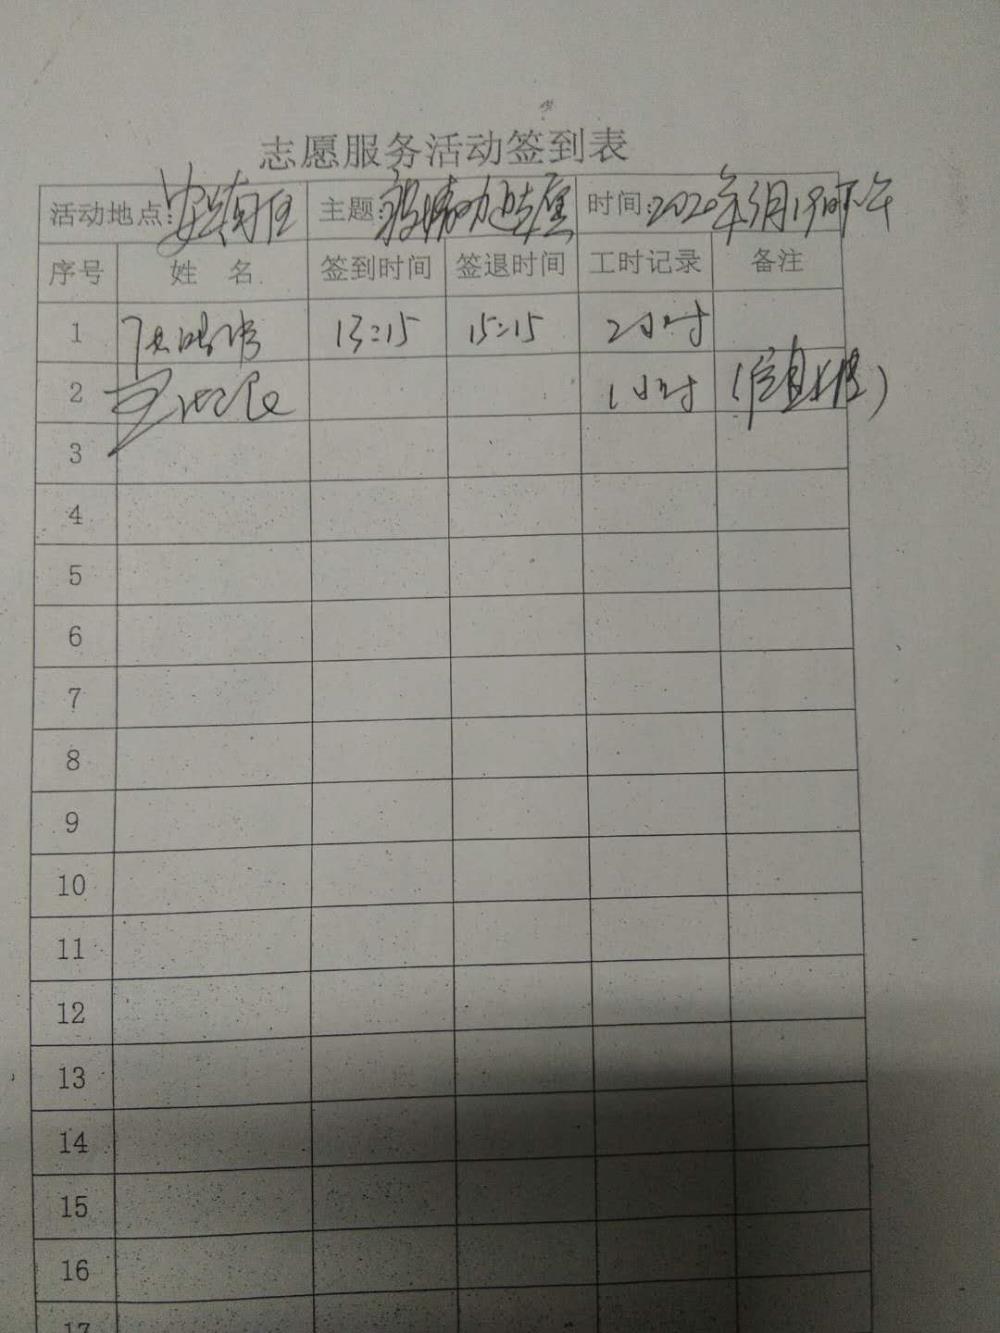 志愿服务活动签到表
活动地点: 主题: 时间:2020年5月19日下午
序号 姓 名 签到时间 签退时间 工时记录 备注
1 13:15 15:15 2小时
2 1小时 (信息上传)
3
4
5
6
7
8
9
10
11
12
13
14
15
16
17